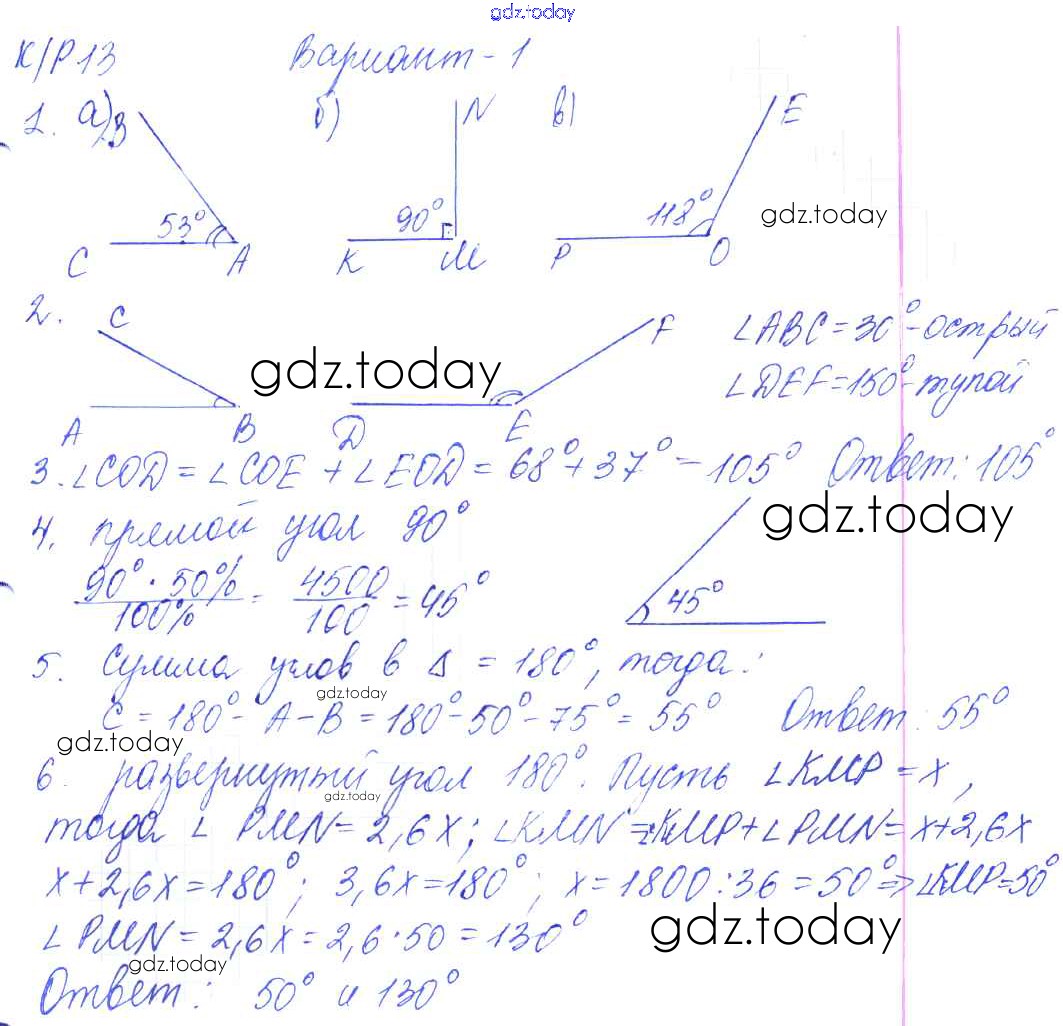 gdz.today
К/Р13 Вариант-1
1. а) В б) N в) Е
53° 90° 118° gdz.today
С А К М Р О
2. С F ∠ABC = 30° - острый
gdz.today ∠DEF = 150° - тупой
А В D Е
3. ∠COD = ∠COE + ∠EOD = 68° + 37° = 105° Ответ: 105°
gdz.today
4. прямой угол 90°
90° · 50% / 100% = 4500 / 100 = 45° 45°
5. Сумма углов в Δ = 180°, тогда:
gdz.today
С = 180° - А - В = 180° - 50° - 75° = 55° Ответ: 55°
gdz.today
6. развернутый угол 180°. Пусть ∠KMP = x,
gdz.today
тогда ∠ PMN = 2,6x; ∠KMN = ∠KMP + ∠PMN = x + 2,6x
x + 2,6x = 180°; 3,6x = 180°; x = 1800 : 36 = 50° => ∠KMP = 50°
gdz.today
∠ PMN = 2,6x = 2,6 · 50 = 130°
gdz.today
Ответ: 50° и 130°